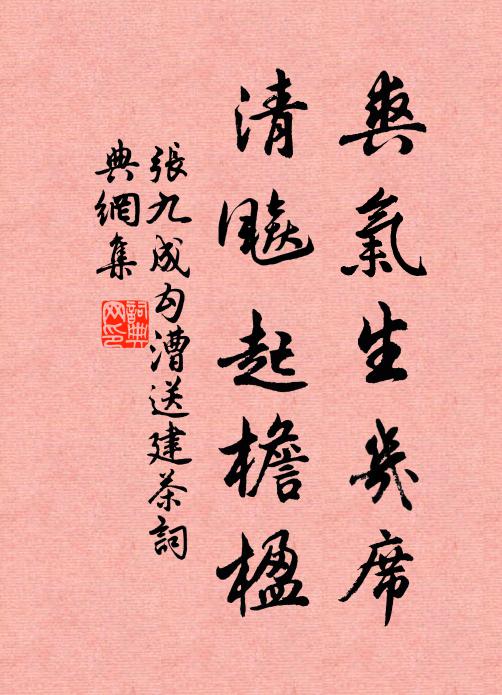 爽氣生几席
清飈起檐楹
張九成勾漕送建茶詞
典網集
詞典网印